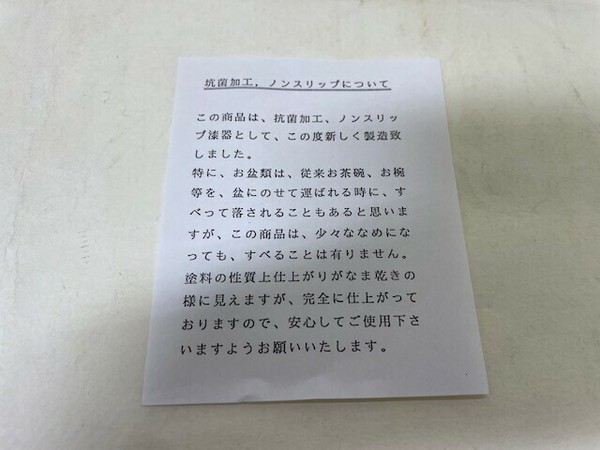 抗菌加工,ノンスリップについて
この商品は、抗菌加工、ノンスリッ
プ漆器として、この度新しく製造致
しました。
特に、お盆類は、従来お茶碗、お椀
等を、盆にのせて運ばれる時に、す
べって落されることもあると思いま
すが、この商品は、少々ななめにな
っても、すべることは有りません。
塗料の性質上仕上がりがなま乾きの
様に見えますが、完全に仕上がって
おりますので、安心してご使用下さ
いますようお願いいたします。